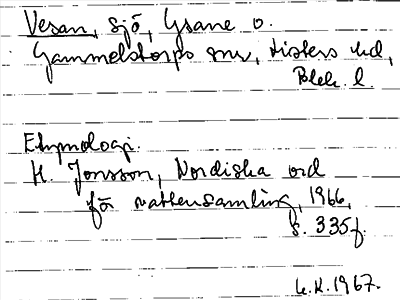 Vesan, sjö, Ysane o.
Gammelstorps snr, Listers hd,
Blek. l.
Etymologi.
H. Jonsson, Nordiska ord
för vattensamling, 1966,
s. 335f.
1967.